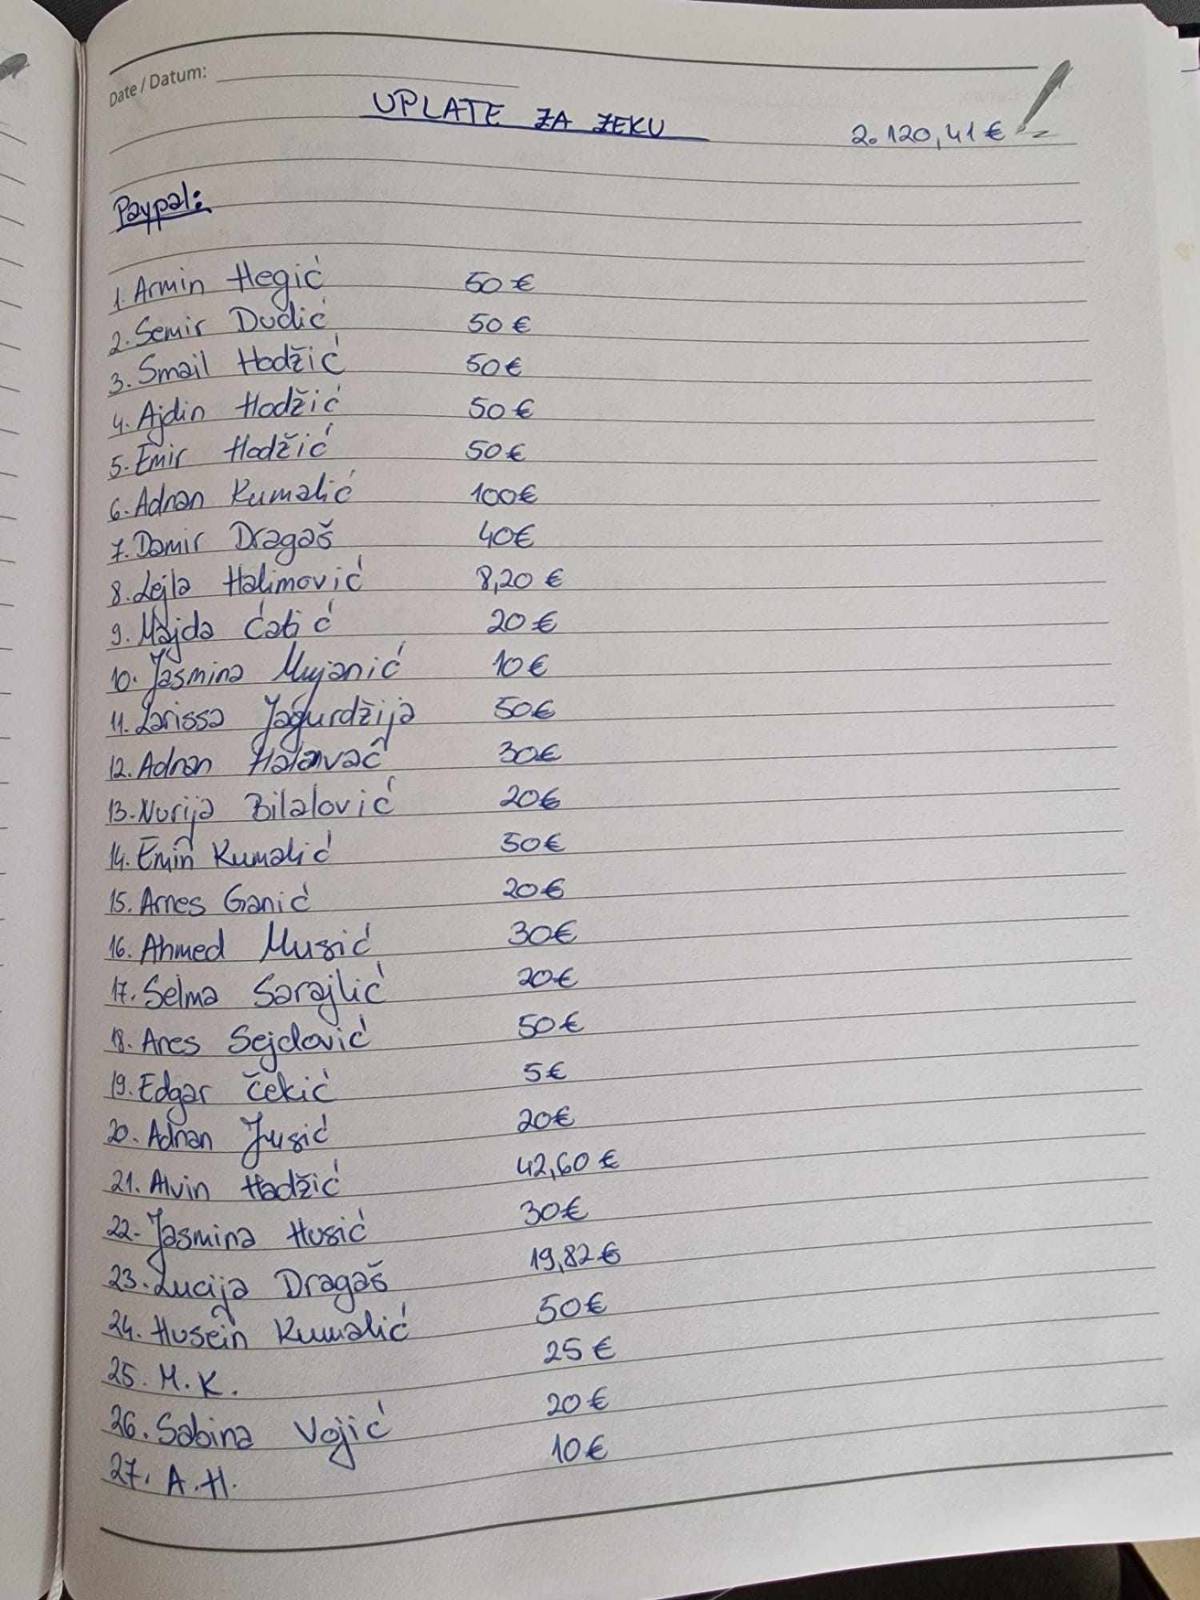 Date / Datum:
UPLATE ZA ZEKU
2.120,41 €
Paypal:
1. Armin Hegić 50 €
2. Semir Dudić 50 €
3. Smail Hodžić 50 €
4. Ajdin Hodžić 50 €
5. Emir Hodžić 50 €
6. Adnan Kumalić 100 €
7. Damir Dragaš 40 €
8. Lejla Halimović 8,20 €
9. Majda Ćatić 20 €
10. Jasmina Mujanić 10 €
11. Larissa Jagurdžija 50 €
12. Adnan 30 €
13. Nurija Bilalović 20 €
14. Emin Kumalić 50 €
15. Arnes Ganić 20 €
16. Ahmed Musić 30 €
17. Selma Sarajlić 20 €
18. Anes Sejdović 50 €
19. Edgar Čekić 5 €
20. Adnan Jusić 20 €
21. Alvin Hadžić 42,60 €
22. Jasmina Husić 30 €
23. Lucija Dragaš 19,82 €
24. Husein Kumalić 50 €
25. M. K. 25 €
26. Sabina Vojić 20 €
27. A. H. 10 €